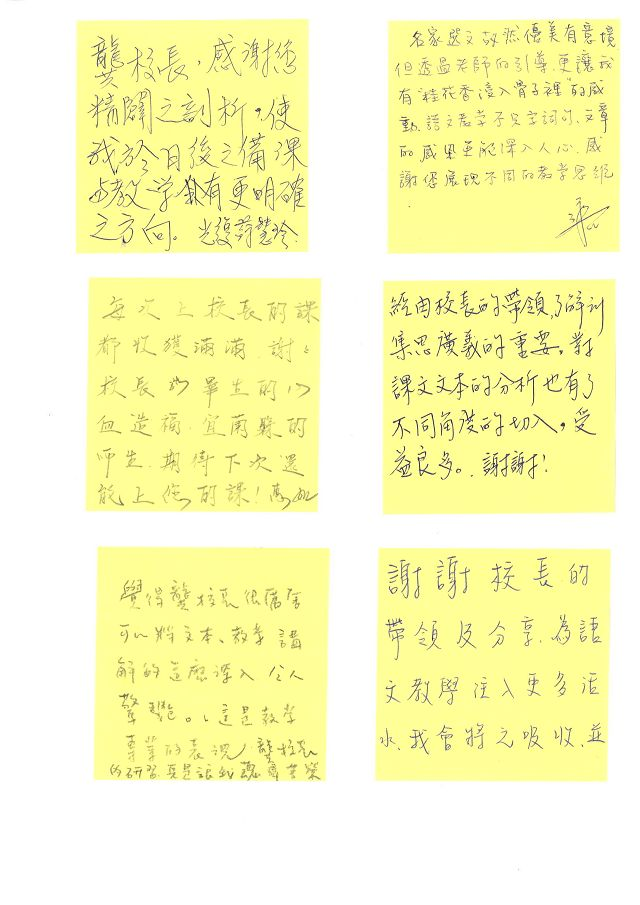 龔校長，感謝您
精闢之剖析，使
我於日後之備課
與教學具有更明確
之方向。光復
名家選文故然優美有意境
但透過老師的引導，更讓我
有"桂花香浸入骨子裡"的感
動，語文教學不只字詞句、文章
的感思更能深入人心，感
謝您展現不同的教學思維
每次上校長的課
都收穫滿滿，謝謝
校長 畢生的心
血造福 宜蘭縣的
師生，期待下次還
能上您的課！
經由校長的帶領，了解到
集思廣義的重要。對
課文文本的分析也有了
不同角度的切入，受
益良多。謝謝！
覺得龔校長很厲害
可以將文本、教學講
解的這麼深入 令人
驚艷。這是教學
專業的表現 龔校長
的研習真是讓我
謝謝校長的
帶領及分享，為語
文教學注入更多活
水，我會將之吸收，並